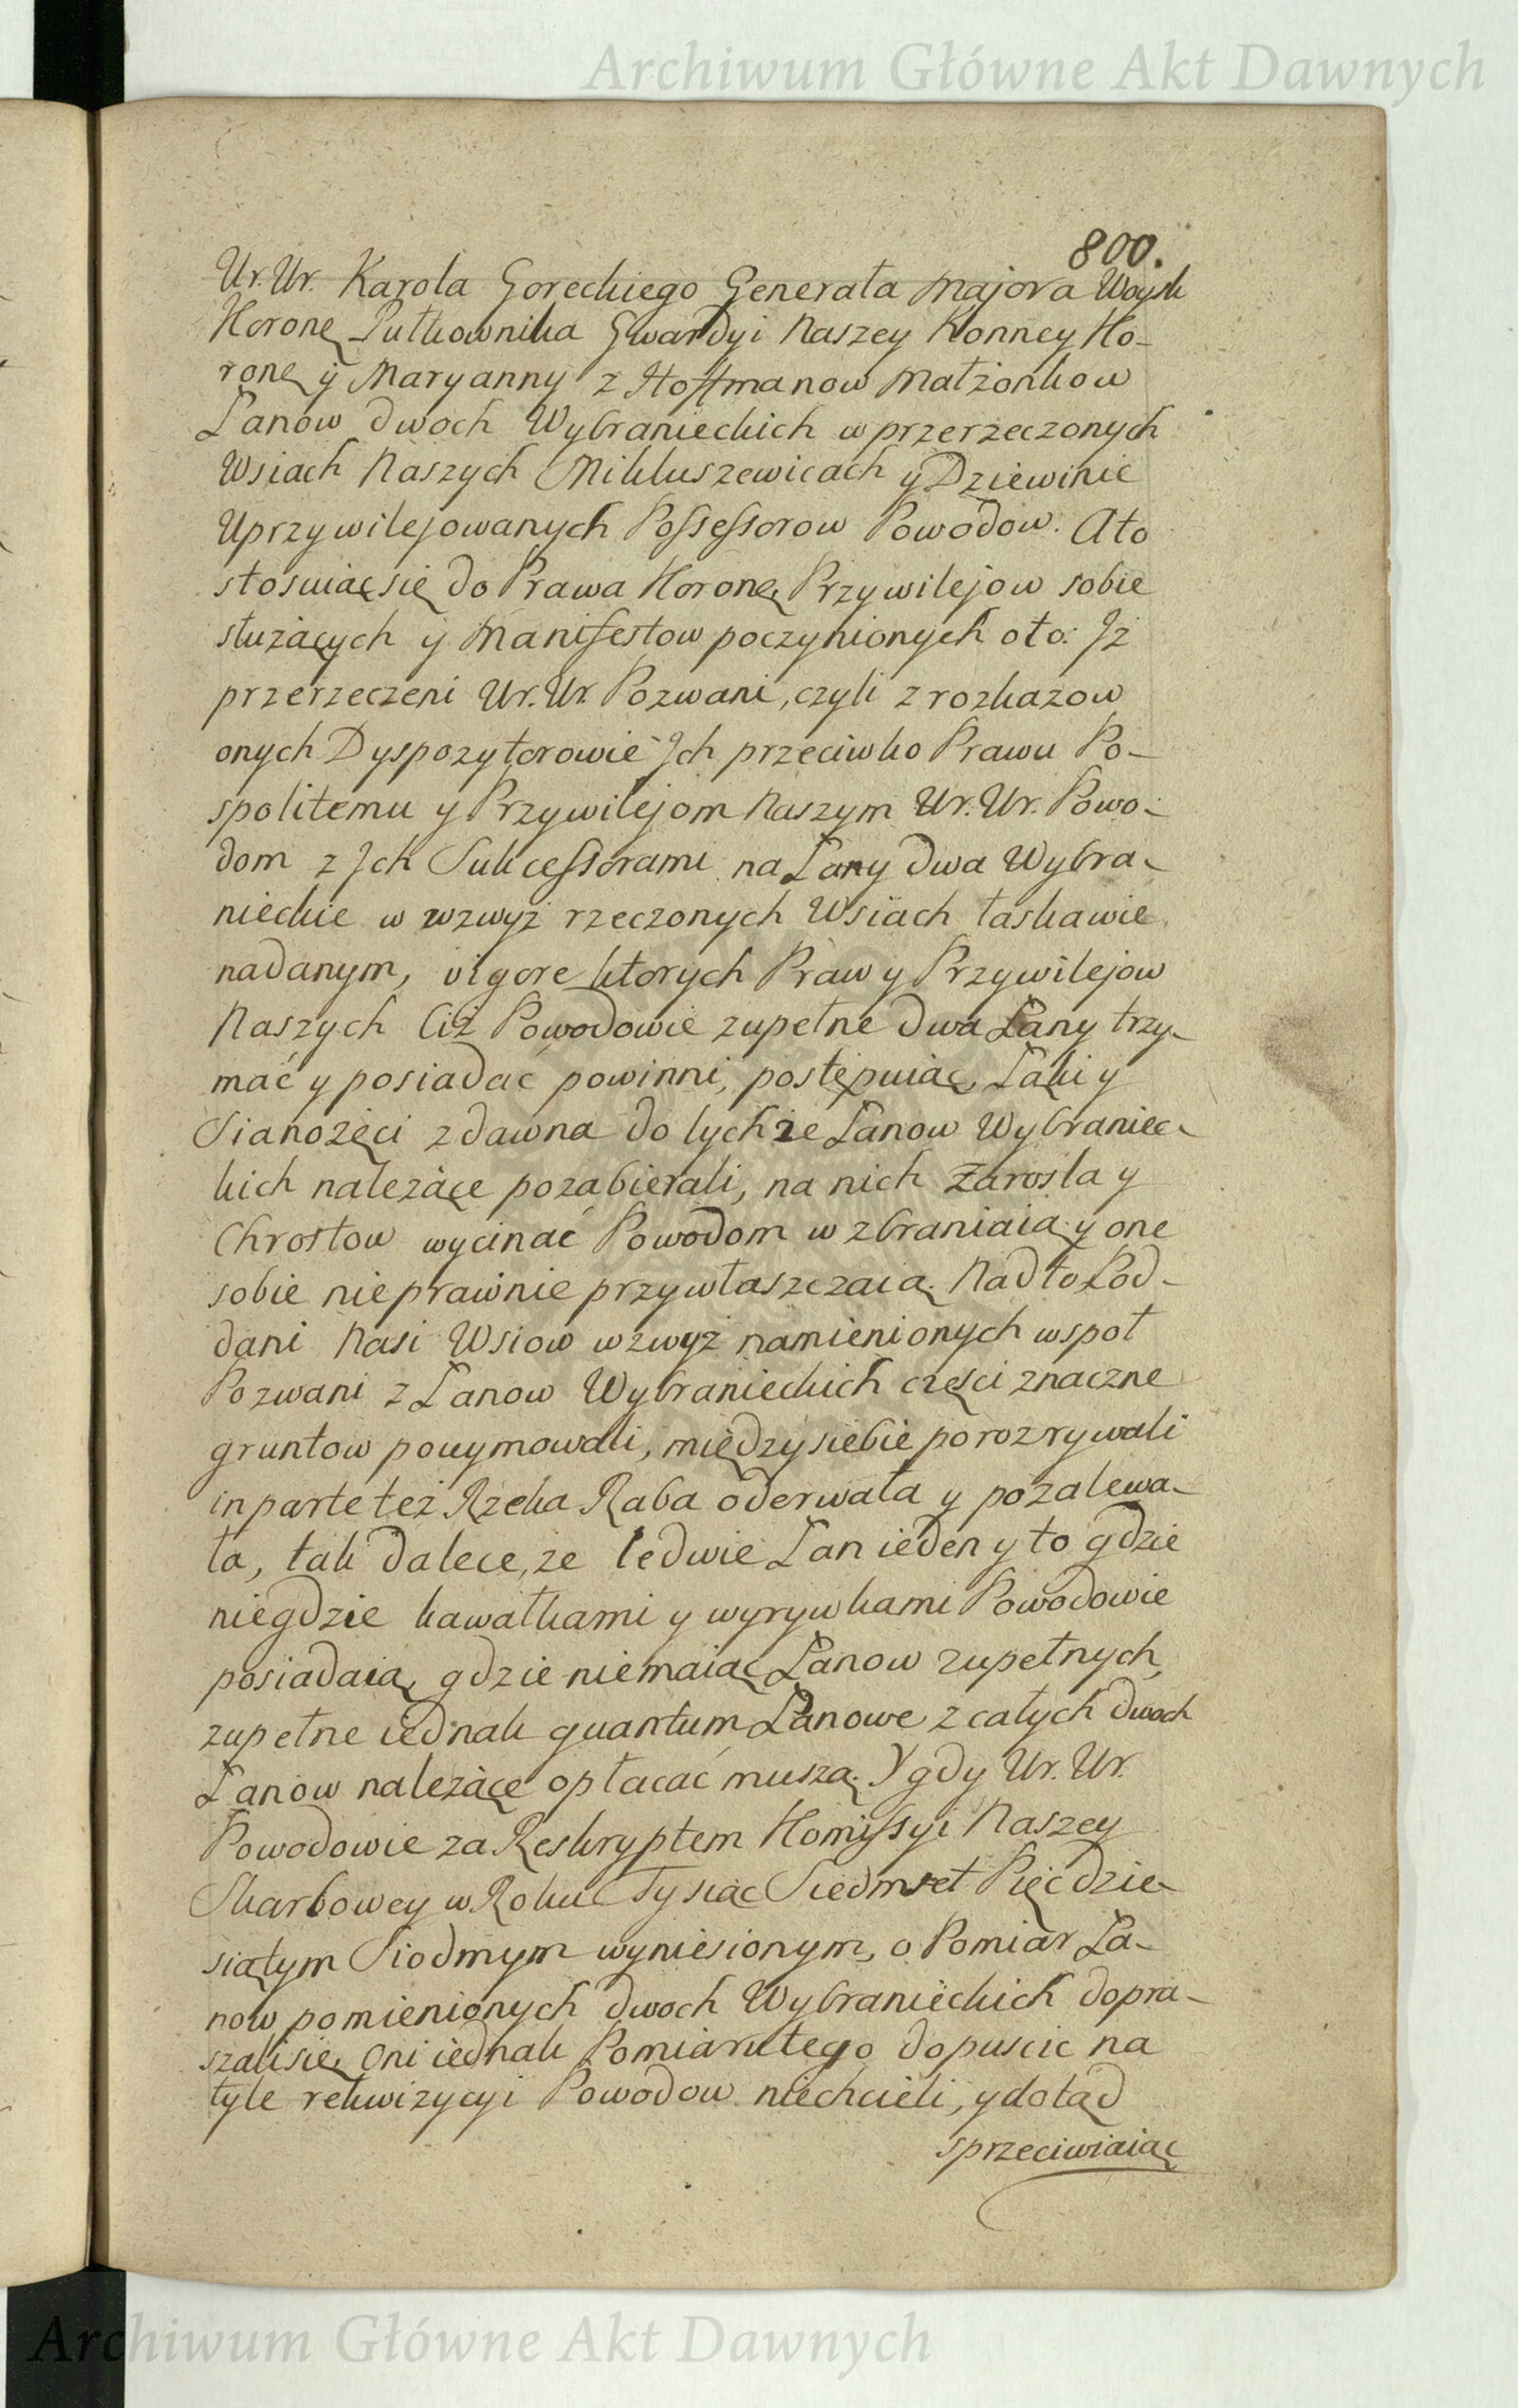 Archiwum Główne Akt Dawnych
800.
Ur. Ur. Karola Goreckiego Generała Majora Woysk
Koronę Pułkownika Gwardyi Naszey Konney Ko-
ronę y Maryanny z Hoffmanow Małżonkow
Łanow dwoch Wybranieckich w przerzeczonych
Wsiach Naszych Mikluszewicach y Dziewinie
Uprzywilejowanych Possessorow Powodow. Ato
stosuiąc się do Prawa Koronę, Przywilejow sobie
służących y Manifestow poczynionych oto: Jż
przerzeczeni Ur. Ur. Pozwani, czyli z rozkazow
onych Dyspozytorowie Jch przeciwko Prawu Po-
spolitemu y Przywilejom Naszym Ur. Ur. Powo-
dom z Jch Sukcessorami na Łany dwa Wybra-
nieckie w wzwyż rzeczonych Wsiach łaskawie
nadanym, vigore ktorych Praw y Przywilejow
Naszych Ciż Powodowie zupełne dwa Łany trzy-
mać y posiadać powinni, postępuiąc, Łąki y
Sianożęci zdawna do tychże Łanow Wybraniec-
kich należące pozabierali, na nich Zarosla y
Chrostow wycinać Powodom wzbraniaią y one
sobie nieprawnie przywłaszczaią. Nadto Pod-
dani Nasi Wsiow wzwyż namienionych wspoł
Pozwani z Łanow Wybranieckich częsci znaczne
gruntow pouymowali, między siebie porozrywali
in parte też Rzeka Raba oderwała y pozalewa-
ła, tak dalece, że ledwie Łan ieden y to gdzie
niegdzie kawałkami y wyrywkami Powodowie
posiadaią, gdzie niemaiąc Łanow zupełnych,
zupełne iednak quantum Łanowe z całych dwoch
Łanow należące opłacać muszą. Y gdy Ur. Ur.
Powodowie za Reskryptem Komissyi Naszey
Skarbowey w Roku Tysiąc Siedmset Pięcdzie-
siątym Siodmym wyniesionym, o Pomiar Ła-
now pomienionych dwoch Wybranieckich dopra-
szali się, oni iednak Pomiaru tego dopuscic na
tyle rekwizycyi Powodow niechcieli, y dotąd
sprzeciwiaiąc
Archiwum Główne Akt Dawnych